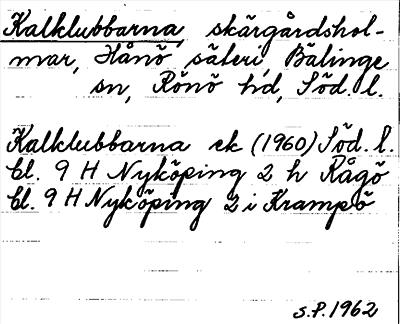 Kalklubbarna, skärgårdshol-
mar, Hånö säteri, Bälinge
sn, Rönö hd, Söd. l.
Kalklubbarna ek (1960) Söd. l.
bl. 9 H Nyköping 2 h Rågö
bl. 9 H Nyköping 2 i Krampö
S.P. 1962